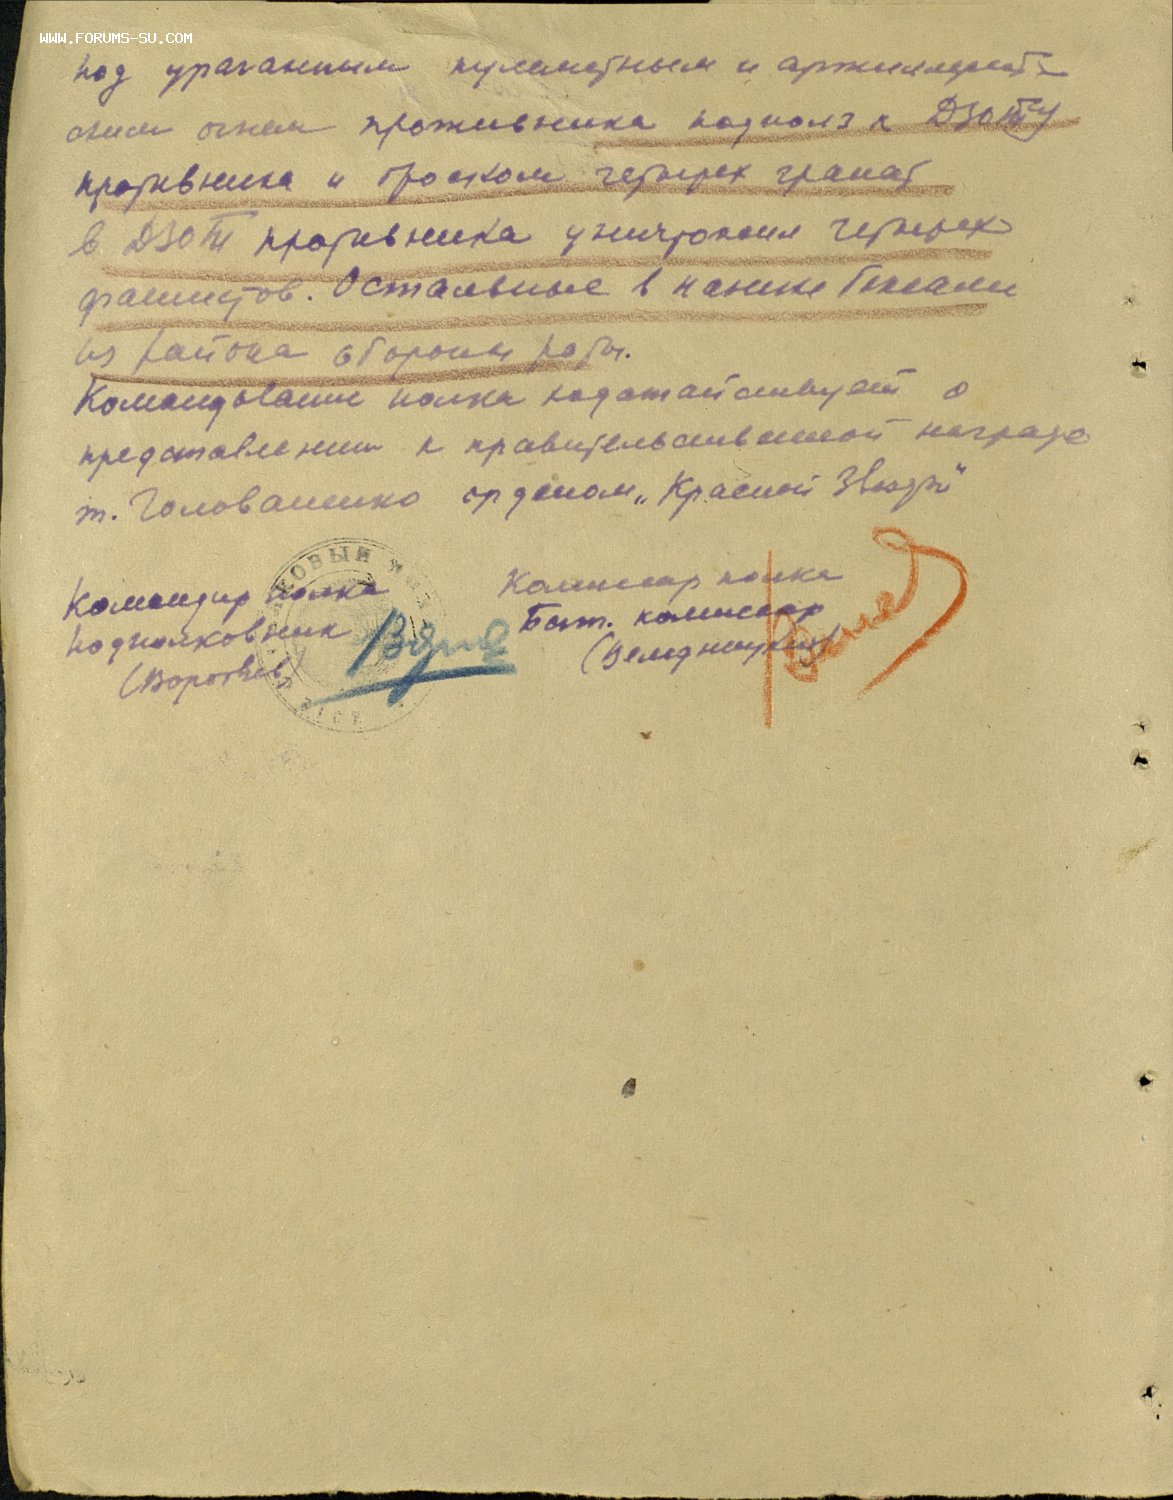 WWW.FORUMS-SU.COM
под ураганным пулеметным и артиллерий-
ским огнем противника подполз к ДЗОТУ
противника и броском четырех гранат
в ДЗОТ противника уничтожил четырех
фашистов. Остальные в панике бежали
из района обороны роты.
Командование полка ходатайствует о
представлении к правительственной награде
т. Головашенко орденом „Красной Звезды“
Командир полка
подполковник
(Воротьев)
Комиссар полка
Бат. комиссар